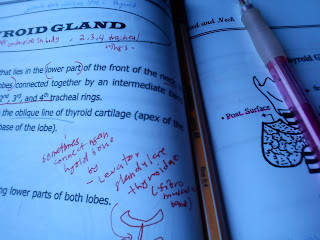 YROID GLAND
2, 3, 4 tracheal
rings.
that lies in the lower part of the front of the neck
lobes connected together by an intermediate
2nd, 3rd, and 4th tracheal rings.
the oblique line of thyroid cartilage (apex of the
base of the lobe).
sometimes
connect
hyoid bone
by
- Levator
glandulae
thyroidae
(fibro
band)
ng lower parts of both lobes.
ead and Neck
yroid G
• Post. Surface